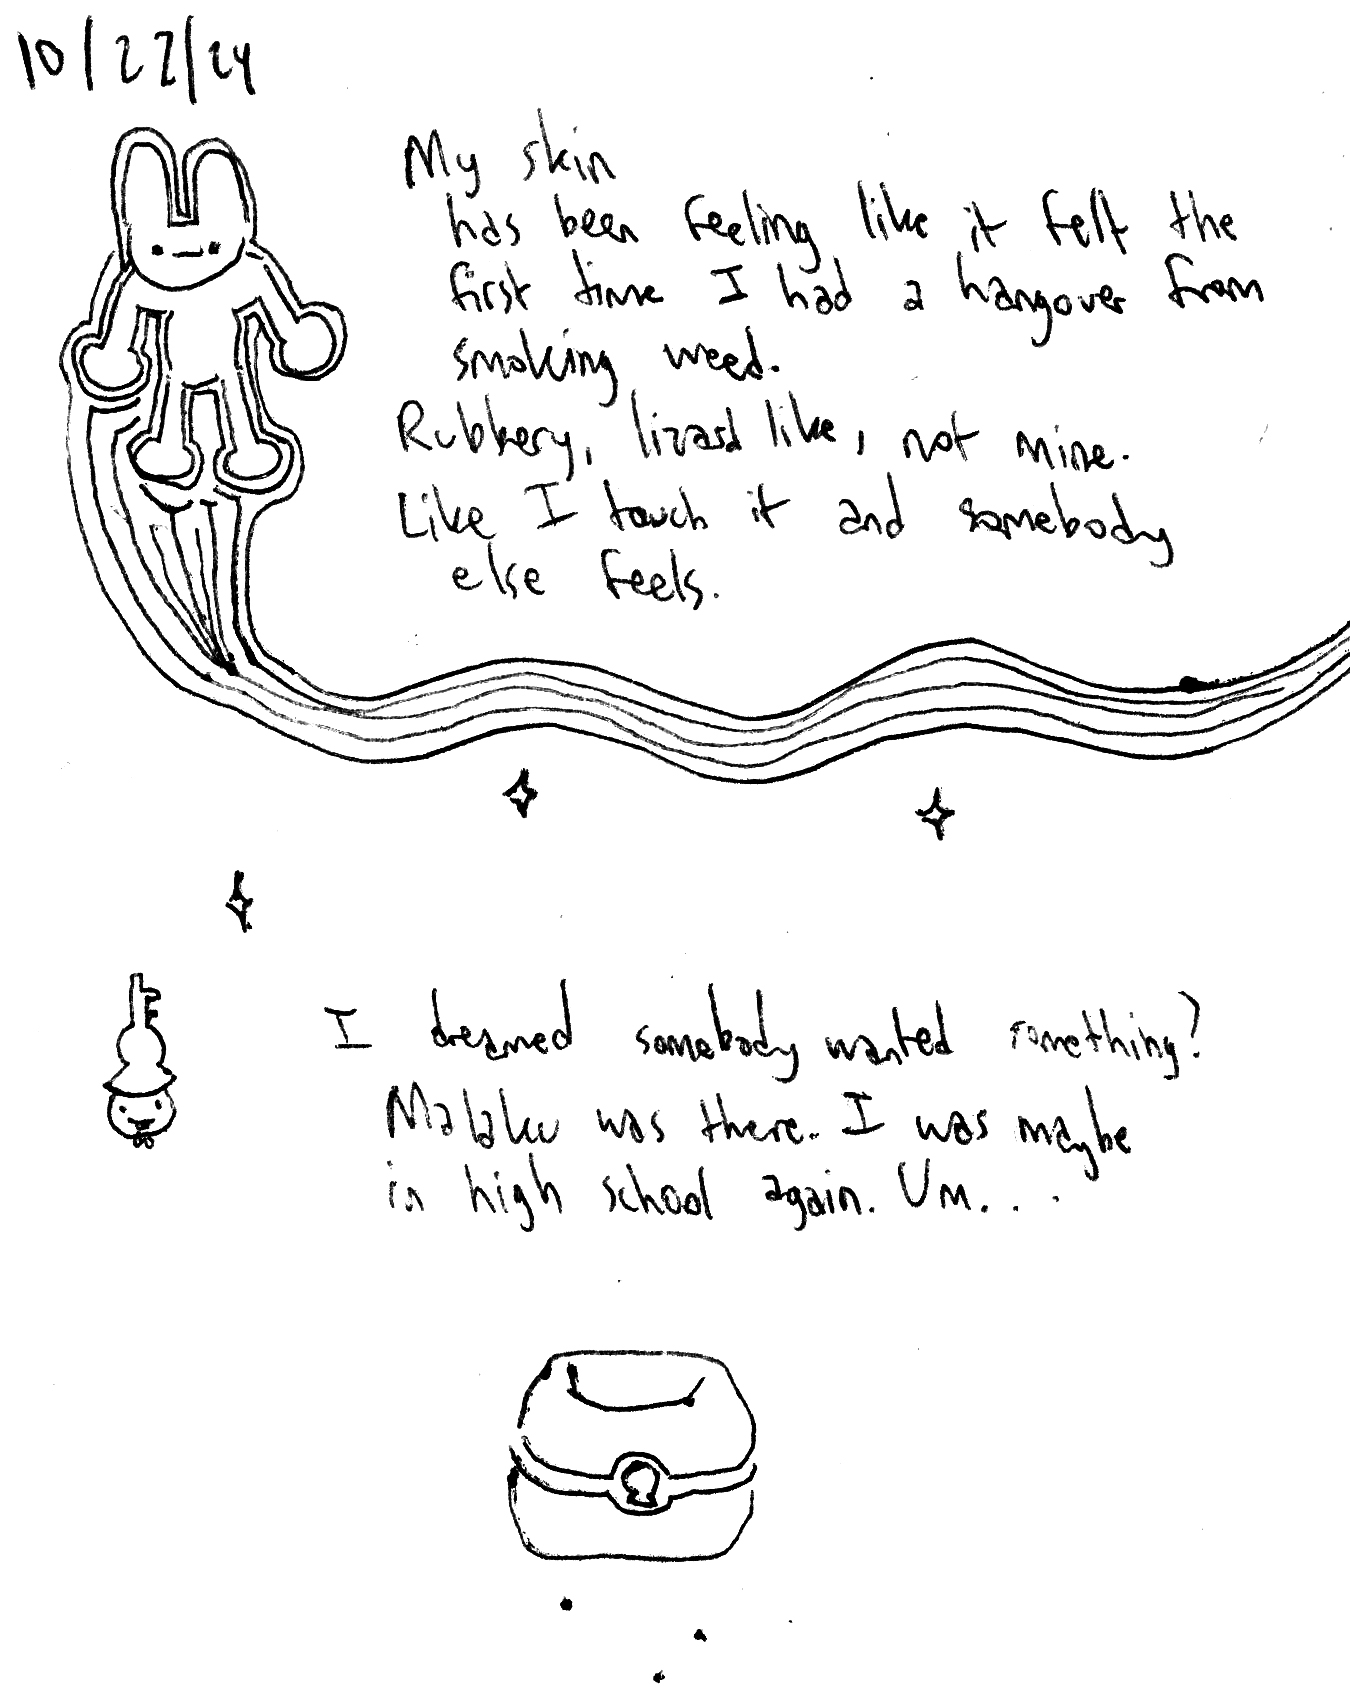 10/27/24
My skin
has been feeling like it felt the
first time I had a hangover from
smoking weed.
Rubbery, lizard like, not mine.
Like I touch it and somebody
else feels.
I dreamed somebody wanted something?
Malaku was there. I was maybe
in high school again. Um...